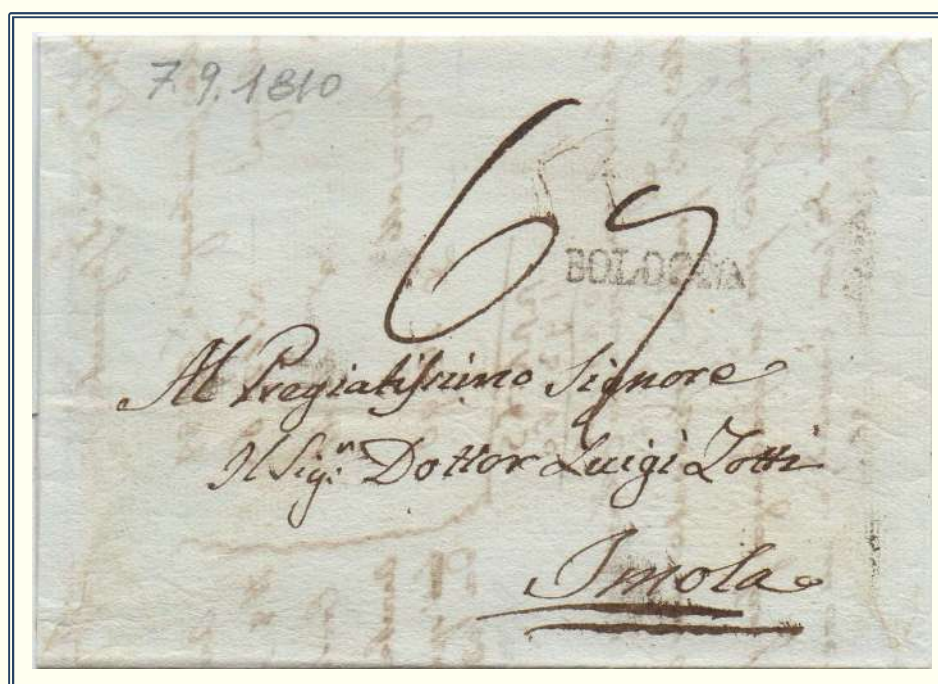 7.9.1810
6
BOLOGNA
Al Pregiatissimo Signore
Il Sigr. Dottor Luigi Zotti
Imola